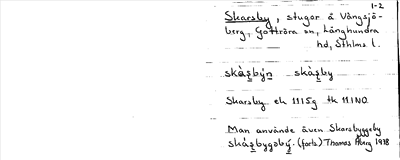 1-2
Skarsby, stugor å Vängsjö-
berg, Gottröra sn, Långhundra
hd, Sthlms l.
skàs̲býn̲ skàs̲by
Skarsby ek 111 5g tk 11 I NO
Man använde även Skarsbyggeby
skás̲byggəbý. (forts.) Thomas Åberg 1978